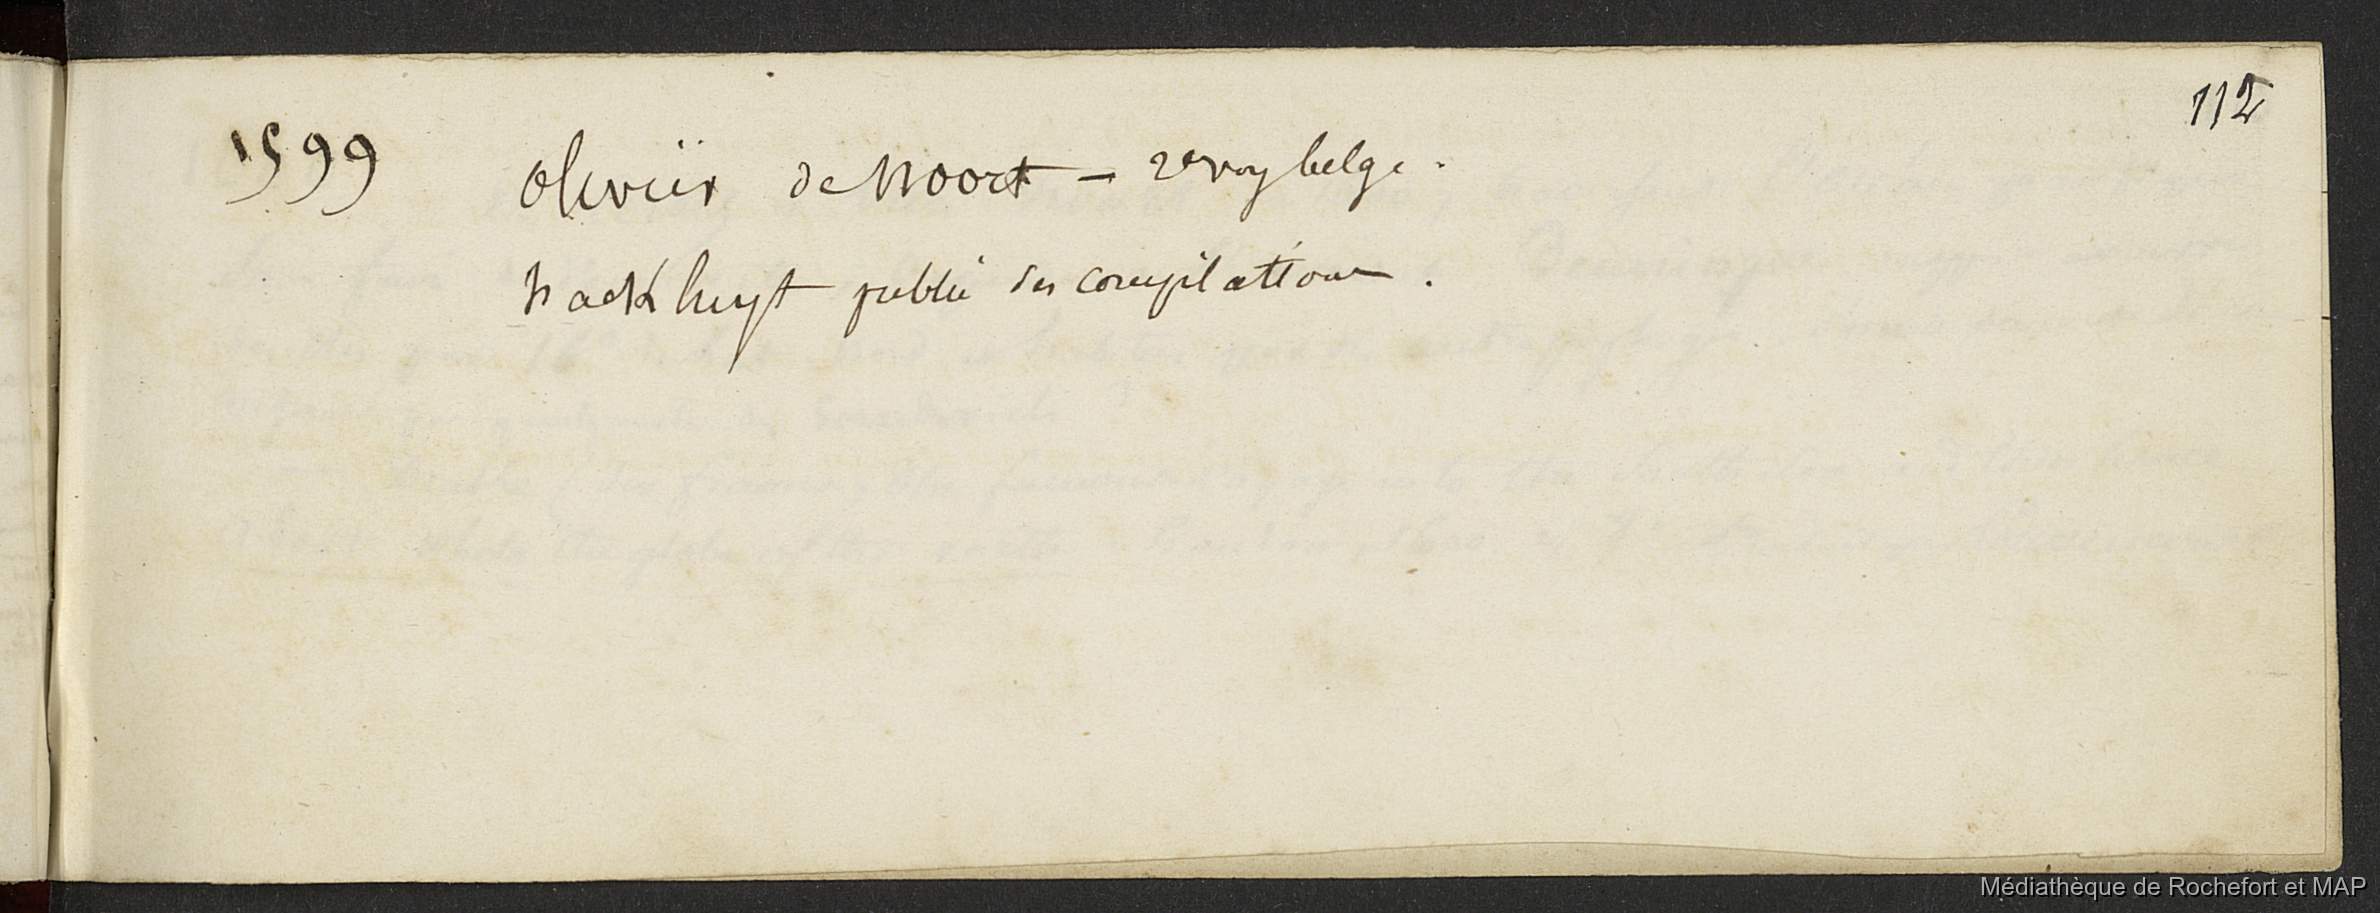 112
1599 Olivier de Noort – 2e voy belge.
hackluyt publie ses compilations.
Médiathèque de Rochefort et MAP